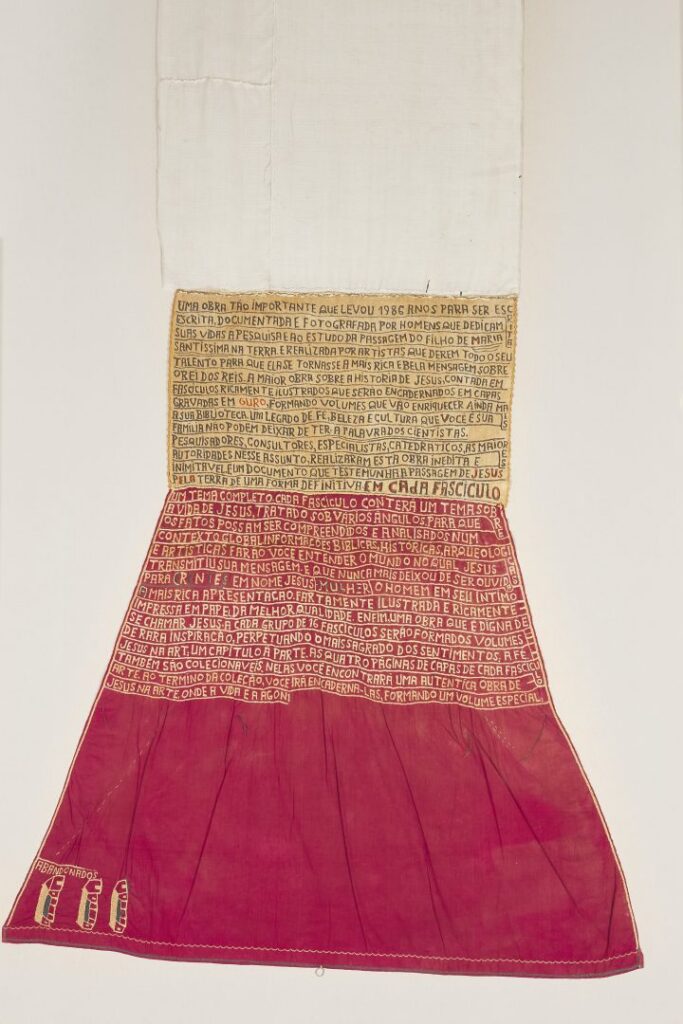 UMA OBRA TÃO IMPORTANTE QUE LEVOU 1986 ANOS PARA SER ESC
ESCRITA, DOCUMENTADA E FOTOGRAFADA POR HOMENS QUE DEDICAM
SUAS VIDAS A PESQUISA E AO ESTUDO DA PASSAGEM DO FILHO DE MARIA
SANTISSIMA NA TERRA. E REALIZADA POR ARTISTAS QUE DEREM TODO O SEU
TALENTO PARA QUE ELA SE TORNASSE A MAIS RICA E BELA MENSAGEM SOBRE
O REI DOS REIS. A MAIOR OBRA SOBRE A HISTORIA DE JESUS, CONTADA EM
FASCICULOS RICAMENTE ILUSTRADOS QUE SERÃO ENCADERNADOS EM CAPAS
GRAVADAS EM OURO, FORMANDO VOLUMES QUE VÃO ENRIQUECER AINDA MAIS
A SUA BIBLIOTECA. UM LEGADO DE FE, BELEZA E CULTURA QUE VOCE E SUA
FAMILIA NÃO PODEM DEIXAR DE TER. A PALAVRA DOS CIENTISTAS.
PESQUISADORES, CONSULTORES, ESPECIALISTAS, CATEDRATICOS, AS MAIORES
AUTORIDADES NESSE ASSUNTO, REALIZARAM ESTA OBRA INEDITA E
INIMITAVEL E UM DOCUMENTO QUE TESTEMUNHA A PASSAGEM DE JESUS
PELA TERRA DE UMA FORMA DEFINITIVA EM CADA FASCICULO
UM TEMA COMPLETO. CADA FASCICULO CONTERA UM TEMA SOBRE
A VIDA DE JESUS, TRATADO SOB VARIOS ANGULOS PARA QUE
OS FATOS POSSAM SER COMPREENDIDOS E ANALISADOS NUM
CONTEXTO GLOBAL INFORMAÇÕES BIBLICAS, HISTORICAS, ARQUEOLOGICAS
E ARTISTICAS FARÃO VOCE ENTENDER O MUNDO NO QUAL JESUS
TRANSMITIU SUA MENSAGEM, E QUE NUNCA MAIS DEIXOU DE SER OUVIDA
PARA CRENTES EM NOME JESUS MULHER O HOMEM EM SEU INTIMO
A MAIS RICA APRESENTAÇÃO. FARTAMENTE ILUSTRADA E RICAMENTE
IMPRESSA EM PAPEL DA MELHOR QUALIDADE. ENFIM, UMA OBRA QUE E DIGNA DE
SE CHAMAR JESUS. A CADA GRUPO DE 16 FASCICULOS SERÃO FORMADOS VOLUMES
DE RARA INSPIRAÇÃO, PERPETUANDO O MAIS SAGRADO DOS SENTIMENTOS, A FE,
JESUS NA ART, UM CAPITULO A PARTE. AS QUATRO PAGINAS DE CAPAS DE CADA FASCICULO
TAMBEM SÃO COLECIONAVEIS, NELAS VOCE ENCONTRARA UMA AUTENTICA OBRA DE
ARTE. AO TERMINO DA COLEÇÃO, VOCE IRA ENCADERNA-LAS, FORMANDO UM VOLUME ESPECIAL
JESUS NA ARTE, ONDE A VIDA E A AGONI
ABANDONADOS